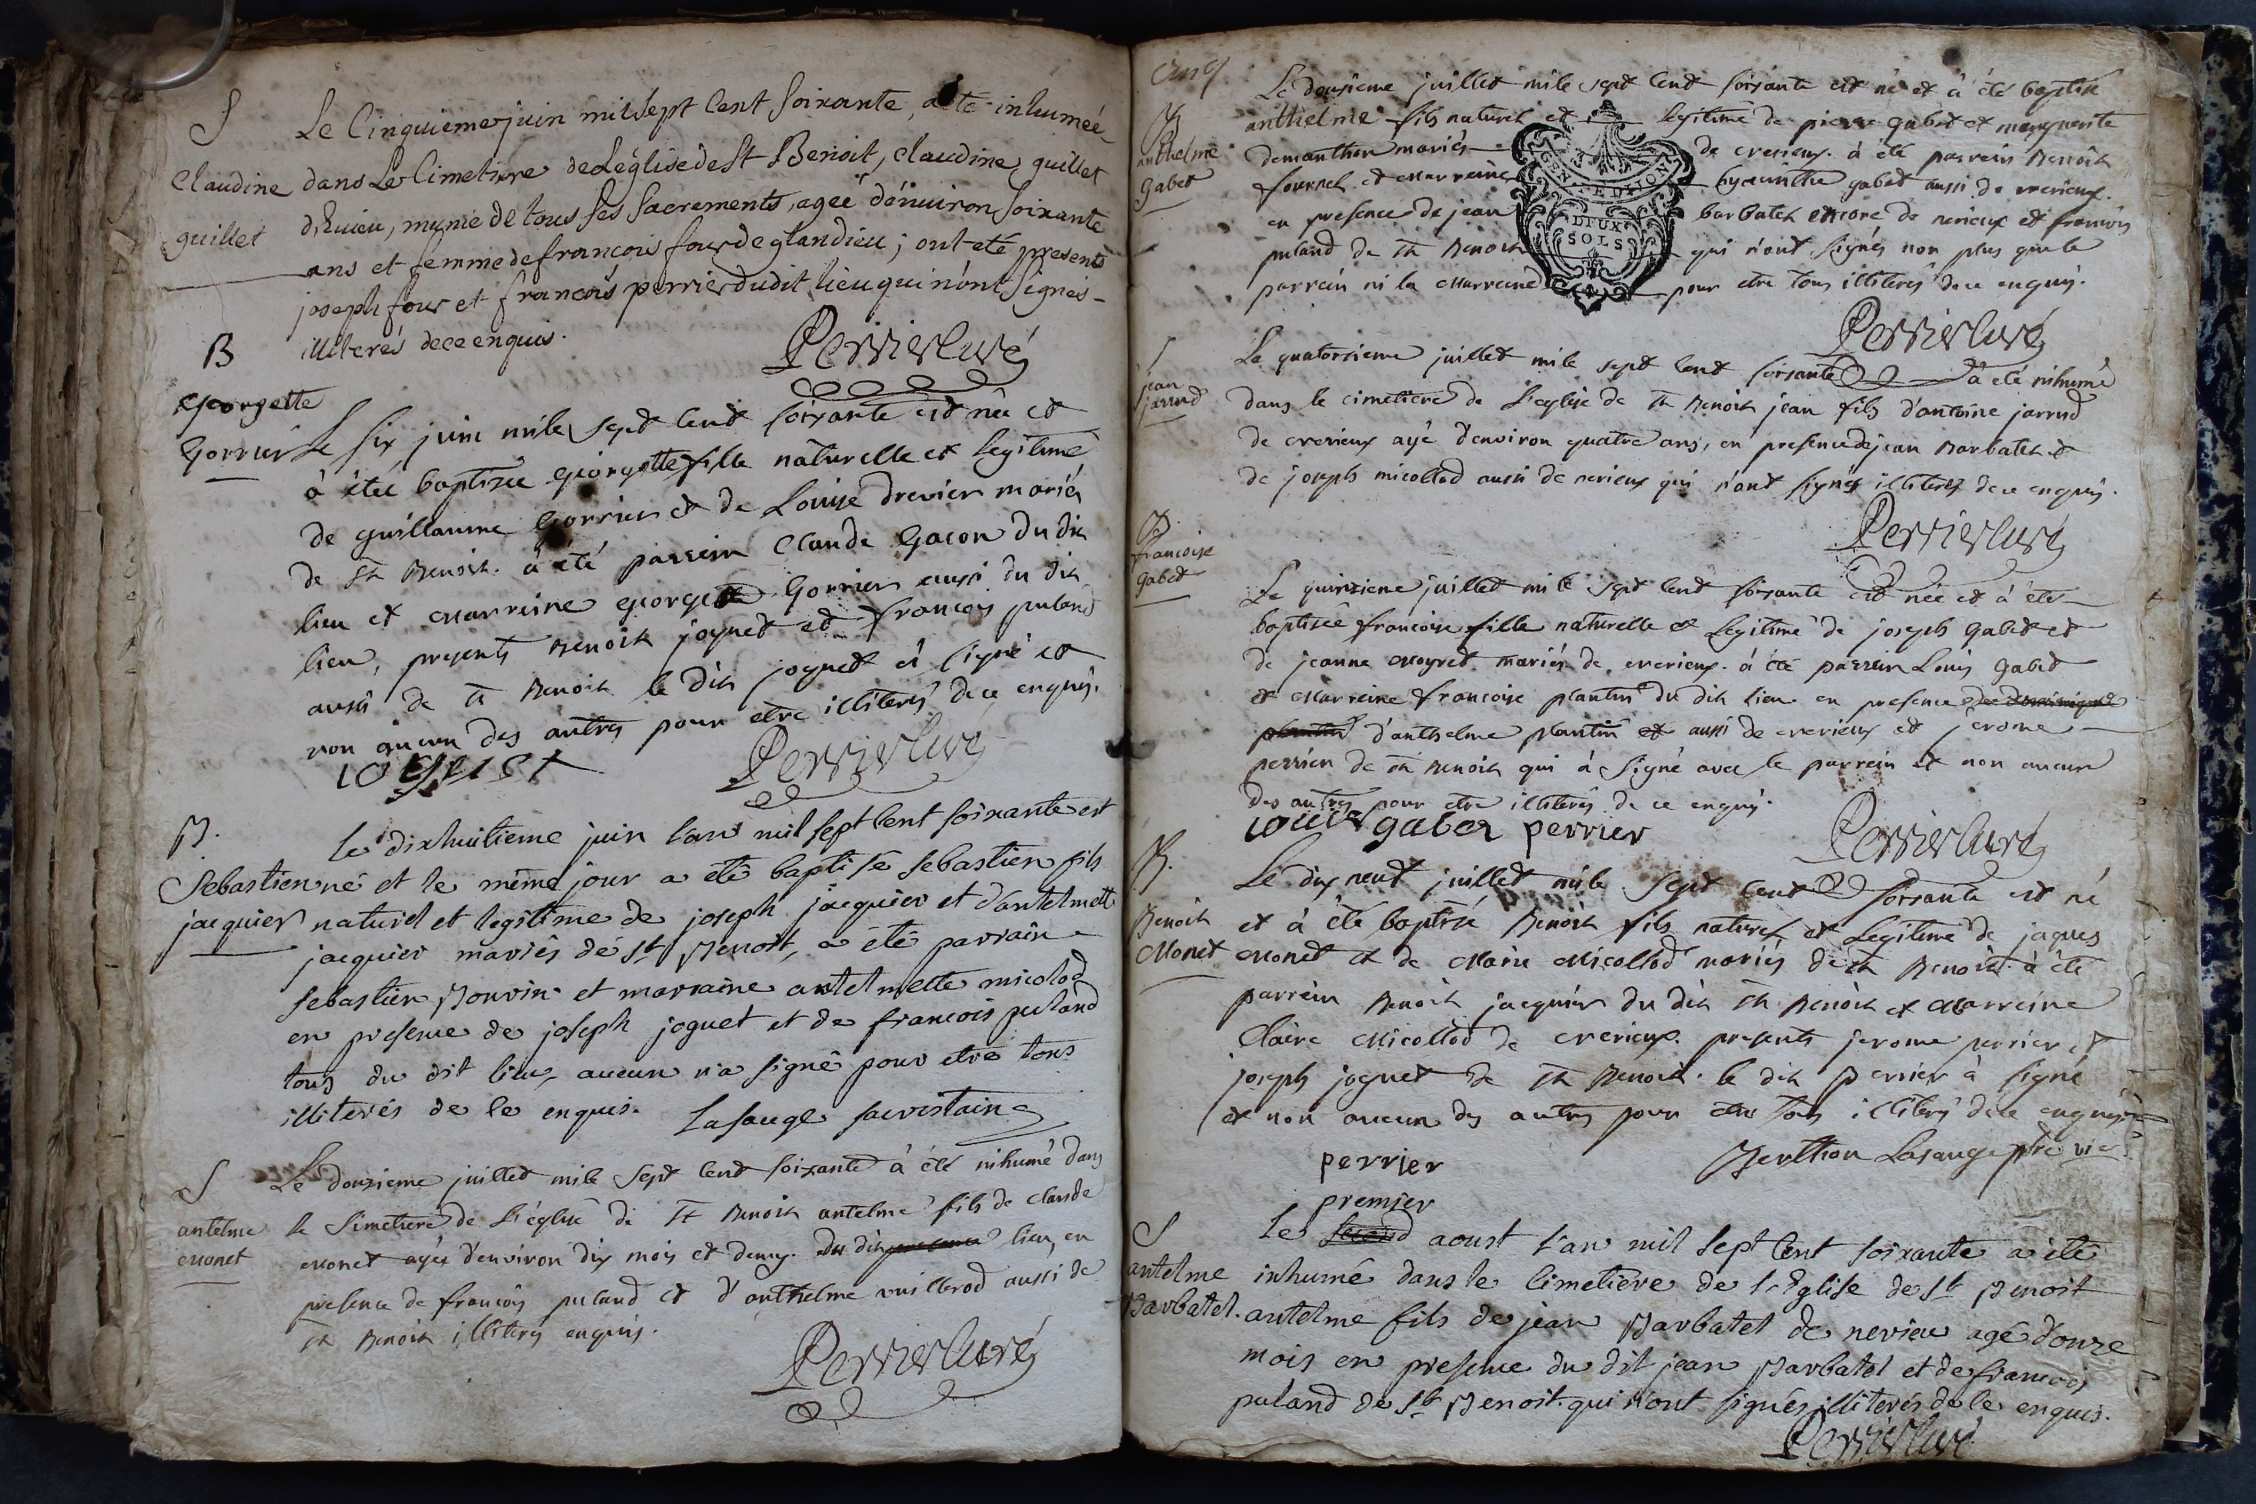 S
Le Cinquieme juin mil sept Cent Soixante, a ete inhumée
Claudine dans Le Cimetiere de Léglise de St Benoit, claudine guillet
guillet d'huieu, munie de tous ses sacrements, ageé dénuiron soixante
ans et femme de francois four de glandieu; ont eté presents
joseph four et francois perrier dudit lieu qui n'ont signes
illiterés de ce enquis.
Perrier curé
B
georgette
gorrier Le six juin mile sept cent soixante est née et
à étée baptisée georgette fille naturelle et legitime
de guillaume gorrier et de Louise drevier mariés
de St Benoit. à été parrein Claude gacon du dit
lieu et marreine georgette gorrier aussi du dit
lieu, presents Benoit joguet et francois puland
aussi de St Benoit le dit joguet à signé et
non aucun des autres pour etre illiterés de ce enquis.
Perrier curé
B.
Le dixhuitieme juin l'an mil sept Cent soixante est
Sebastien né et le même jour a été baptisé sebastien fils
jacquier naturel et legitime de joseph jacquier et d'antelmette
jacquier mariés de St Benoit, a été parrain
sebastien Bouvin et marraine antelmette micolod
en presence de joseph joguet et de francois puland
tous du dit lieu, aucun n'a signé pour etre tous
illiterés de ce enquis. Lasauge sacristain
S
Le douzieme juillet mile sept cent soixante à été inhumé dans
antelme le simetiere de L'église de St Benoit antelme fils de claude
monet monet agé d'environ dix mois et demy. du dit lieu, en
presence de francois puland et d'anthelme vuillerod aussi de
St Benoit illiterés enquis.
Perrier curé
cinq
Le deuxieme juillet mile sept cent soixante est né et à été baptisé
B
anthelme fils naturel et legitime de pierre gabet et marguerite
anthelme
demanthon mariés de crerieux. à été parrein Benoit
gabet
fournel et marreine hyacinthe gabet aussi de crerieux.
en presence de jean barbatel encore de nerieux et francois
puland de St Benoit qui n'ont signés non plus que le
parrein ni la marreine pour etre tous illiterés de ce enquis.
GEN. EDITION
DEUX
SOLS
Perrier curé
S
Le quatorsieme juillet mile sept cent soixante à été inhumé
jean
jarrod dans le cimetiere de L'eglise de St Benoit jean fils d'antoine jarrod
de crerieux agé d'environ quatre ans, en presence de jean Barbatel et
de joseph micollod aussi de nerieux qui n'ont signés illiterés de ce enquis.
Perrier curé
B.
francoise
gabet
Le quinzieme juillet mile sept cent soixante est née et à été
baptisée francoise fille naturelle et Legitime de joseph gabet et
de jeanne moyret mariés de crerieux. à été parrein Louis gabet
et marreine francoise plantin du dit lieu en presence de dominique
plantin d'anthelme plantin et aussi de crerieux et jerome
perrier de St Benoit qui à signé avec le parrein et non aucun
des autres pour etre illiterés de ce enquis.
gabet perrier
Perrier curé
B.
Le dix neuf juillet mile sept cent soixante est né
Benoit et à été baptisé Benoit fils naturel et Legitime de jaques
Monet monet et de Marie Micollod mariés de St Benoit à été
parrein Benoit jacquier du dit St Benoit et Marreine
Claire Micollod de crerieux. presents jerome perrier et
joseph joguet de St Benoit. le dit perrier à signé
et non aucun des autres pour etre tous illiterés de ce enquis.
perrier
Berthon Lasauge ptre vic.
premier
S
Le second aoust l'an mil sept Cent soixante a été
antelme inhumé dans le Cimetiere de l'Eglise de St Benoit
Barbatel. antelme fils de jean Barbatel de nerieu agé d'onze
mois en presence du dit jean Barbatel et de francois
puland de St Benoit. qui n'ont signés illiterés de ce enquis.
Perrier curé